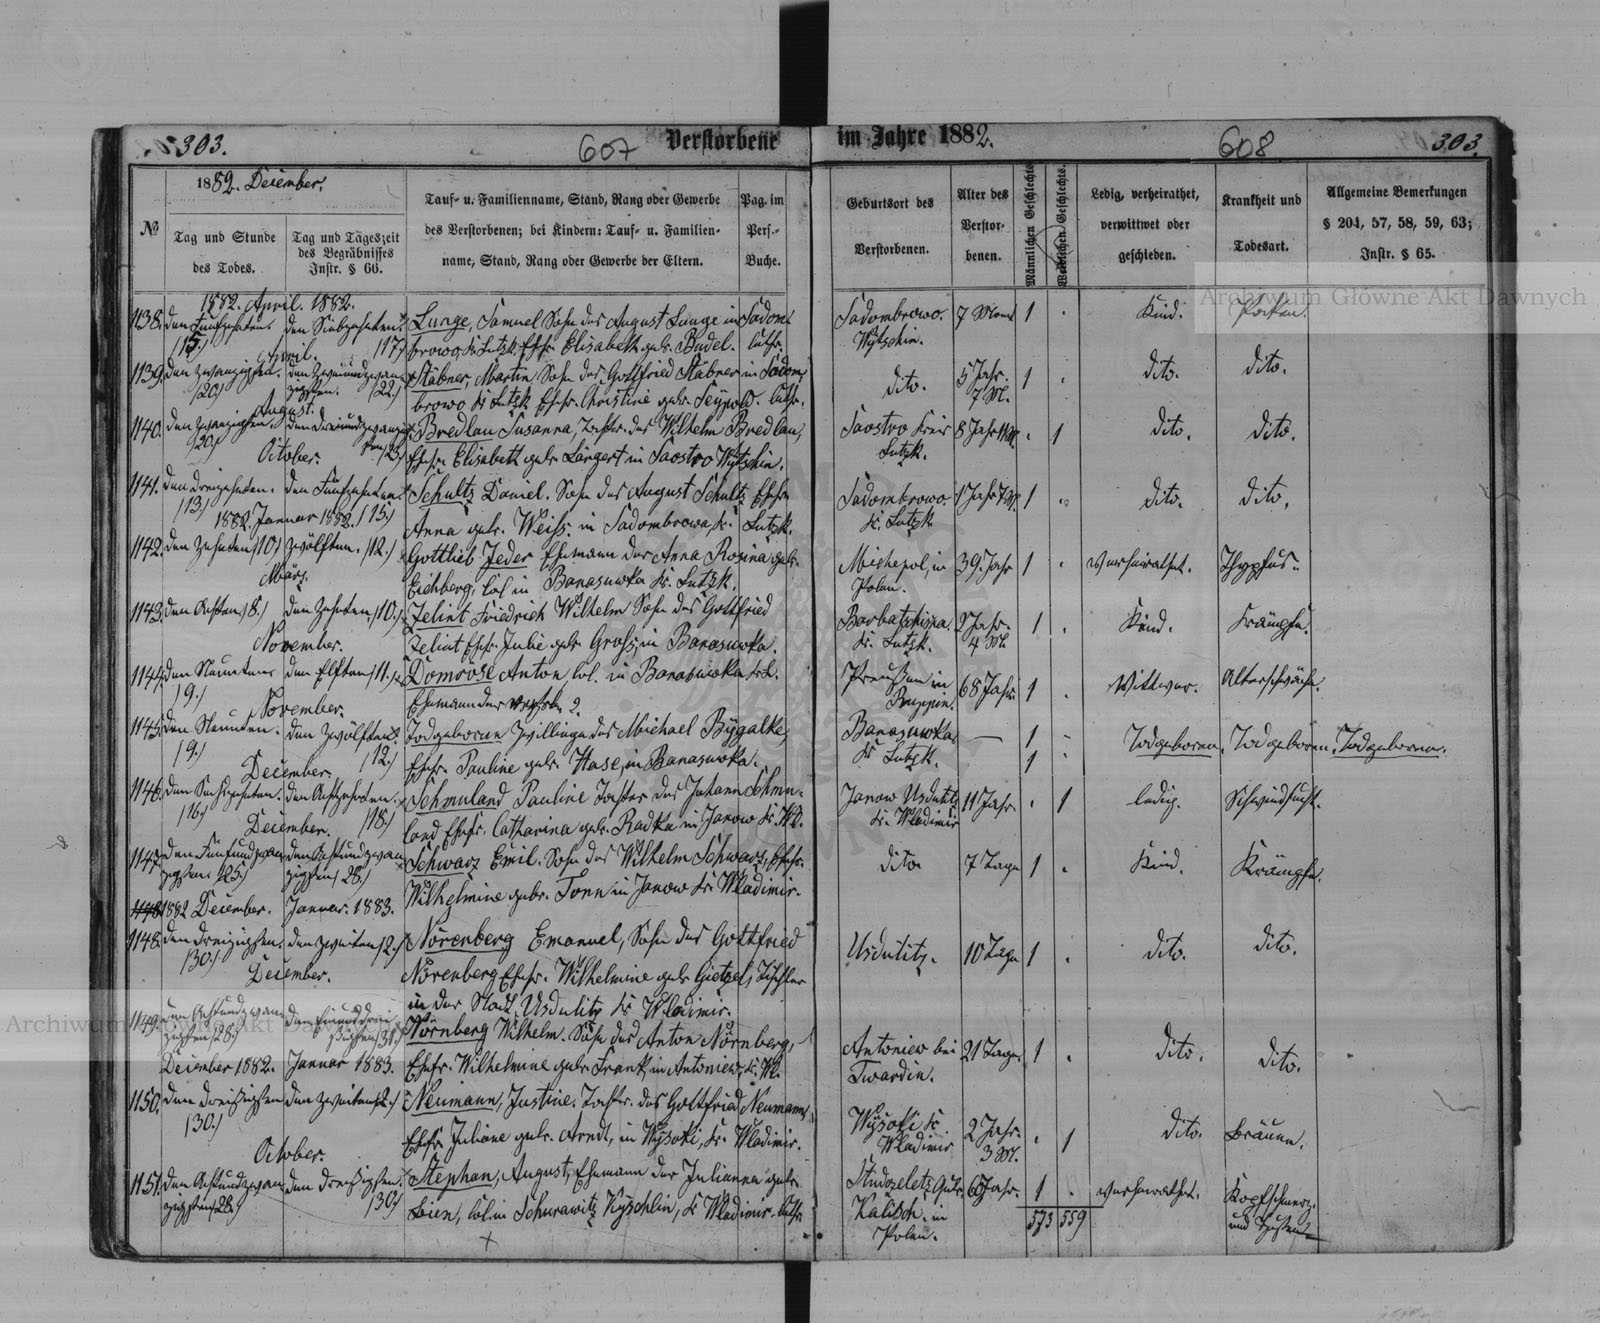 303.
607
Verstorbene
im Jahre 1882.
608
303.
1882. December.
№
Tag und Stunde
des Todes.
Tag und Tageszeit
des Begräbnisses
Instr. § 66.
Tauf- u. Familienname, Stand, Rang oder Gewerbe
des Verstorbenen; bei Kindern: Tauf- u. Familien-
name, Stand, Rang oder Gewerbe der Eltern.
Pag. im
Pers.-
Buche.
Geburtsort des
Verstorbenen.
Alter des
Verstor-
benen.
Männlichen Geschlechts.
Weiblichen Geschlechts.
Ledig, verheirathet,
verwittwet oder
geschieden.
Krankheit und
Todesart.
Allgemeine Bemerkungen
§ 204, 57, 58, 59, 63;
Instr. § 65.
1882. April. 1882.
1138. den Fünfzehnten. den Siebzehnten. Lange, Samuel Sohn des August Lange in Sadom- Sadombrowo. 7 Monat 1 . Kind. Pocken.
/15./ April. /17./ browo, Kr. Lutzk, Ehefr. Elisabeth geb. Budel. luth. Wytschin.
1139. den Zwanzigsten. den Zweiundzwan- Stäbner, Martin Sohn des Gottfried Stäbner in Sadom- dito. 5 Jahr. 1 . dito. dito.
/20./ zigsten. /22./ browo Kr. Lutzk Ehefr. Christine geb. Seypold. luth. 7 M.
August.
1140. den Zwanzigsten. den Dreiundzwanzig- Bredlau Susanna, Tochter des Wilhelm Bredlau, Saostro Kreis 8 Jahr . 1 dito. dito.
/20./ sten /23./ Ehefr. Elisabeth geb. Längert in Saostro Wytschin. Lutzk.
October.
1141. den Dreizehnten. den Fünfzehnten. Schultz Daniel. Sohn des August Schultz Ehefr. Sadombrowo. 1 dito. dito.
/13./ /15./ Anna geb. Weiß in Sadombrowo, Kr. Lutzk. Kr. Lutzk
1882. Januar 1882.
1142. den Zehnten /10./ Zwölften. /12./ Gottlieb Jeder Ehemann der Anna Rosina geb. in 39. Jahr 1 . verheirathet. Thyphus.
März. Eichberg, Col. in Banasuwka Kr. Lutzk. Polen.
1143. den Achten /8./ den Zehnten /10./ Zelint Friedrich Wilhelm Sohn des Gottfried Jahr. 1 . Kind. Krämpfe.
Zelint Ehefr. Julie geb. Groß, in Banasuwka. Kr. Lutzk. 4 M.
November.
1144. den Neunten den Elften /11./ Domröse Anton, Col. in Banasuwka Preußen in 68 Jahr. 1 . Wittwer. Altersschwäche.
/9./ Ehemann der ?
November.
1145. den Neunten. den Zwölften. Todgeborene Zwillinge des Michael Bygalke, Banasuwka — 1 - Todgeboren. Todgeboren. Todgeboren.
/9./ /12./ Ehefr. Pauline geb. Hase, in Banasuwka. Kr. Lutzk. 1 .
December.
1146. den Sechszehnten. den Achtzehnten. Schmuland Pauline Tochter des Johann Schmu- Janow Usdutitz 11 Jahr. . 1 ledig. Schwindsucht.
/16./ /18./ land Ehefr. Catharina geb. Radtka in Janow Kr. Wl. Kr. Wladimir
December.
1147. den Fünfundzwan- den Achtundzwan- Schwarz Emil. Sohn des Wilhelm Schwarz, Ehefr. dito 7 Tage 1 . Kind. Krämpfe.
zigsten /25./ zigsten /28./ Wilhelmine geb. Tonn in Janow Kr. Wladimir.
1882 December. Januar. 1883.
1148. den Dreizigsten. den Zweiten /2./ Nörenberg Emanuel, Sohn des Gottfried Usdutitz. 10 Tage 1 . dito. dito.
/30./ Nörenberg Ehefr. Wilhelmine geb. Gietzel, Tischler
December. in der Stadt Usdutitz Kr. Wladimir.
1149. den Achtundzwan- den Einunddrei- Nörnberg Wilhelm. Sohn des Anton Nörnberg, Antoniew bei 21 Tage. 1 . dito. dito.
zigsten /28./ ßigsten /31./ Ehefr. Wilhelmine geb. Frank, in Antoniew, Kr. Wl. Twardin.
December 1882. Januar 1883.
1150. den Dreißigsten den Zweiten /2./ Neumann, Justine. Tochter des Gottfried Neumann, Wysoki Kr. 2 Jahr. . 1 dito. Bräune.
/30./ Ehefr. Juliane geb. Arndt, in Wysoki, Kr. Wladimir. Wladimir 3 M.
October.
1151. den Achtundzwan- den Dreißigsten. Stephan, August, Ehemann der Julianna geb. Jahr. 1 . verheirathet. Kopfschmerz
zigsten /28./ /30./ Bien, Col. in Schurawitz Kyschlin, Kr. Wladimir. luth. Kalisch. in 573 559 und Husten
Polen.
Archiwum Główne Akt Dawnych
Archiwum Główne Akt Dawnych